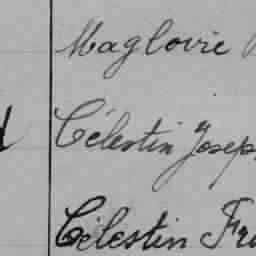 Maglovie
Célestin Josep
Célestin Fra